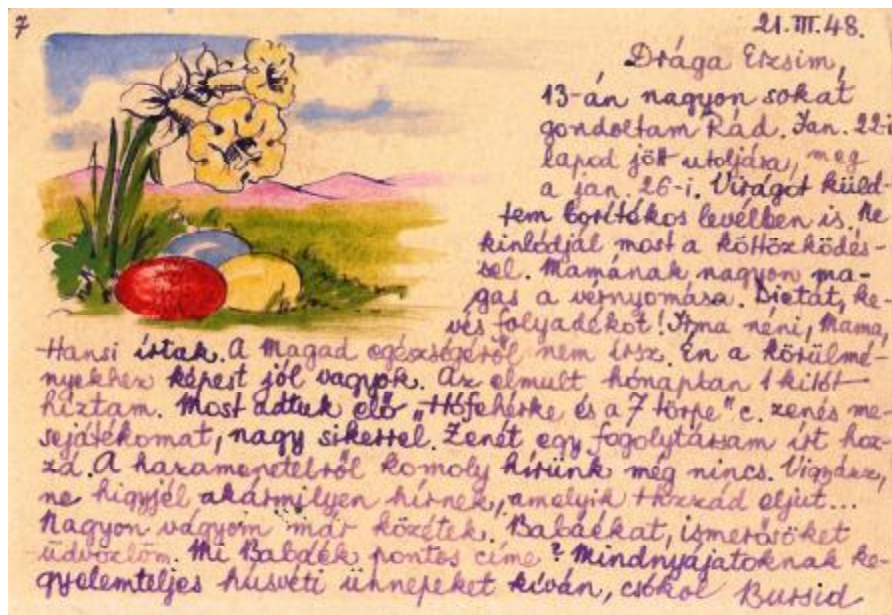 7
21.III.48.
Drága Erzsim,
13-án nagyon sokat
gondoltam Rád. Jan. 22-i
lapod jött utoljára, meg
a jan. 26-i. Virágot küld-
tem borítékos levélben is. Ne
kinlódjál most a költözködés-
sel. Mamának nagyon ma-
gas a vérnyomása. Diétát, ke-
vés folyadékot! Irma néni, Mama,
Hansi írtak. A Magad egészségéről nem írsz. Én a körülmé-
nyekhez képest jól vagyok. Az elmult hónapban 1 kilót
híztam. Most adtuk elő „Hófehérke és a 7 törpe" c. zenés me-
sejátékomat, nagy sikerrel. Zenét egy fogolytársam írt hoz-
zá. A hazamenetelről komoly hírünk még nincs. Vigyázz,
ne higyjél akármilyen hírnek, amelyik Hozzád eljut...
Nagyon vágyom már közétek. Babáékat, ismerősöket
üdvözlöm. Mi Babáék pontos címe? Mindnyájatoknak ke-
gyelemteljes húsvéti ünnepeket kíván, csókol Bursid